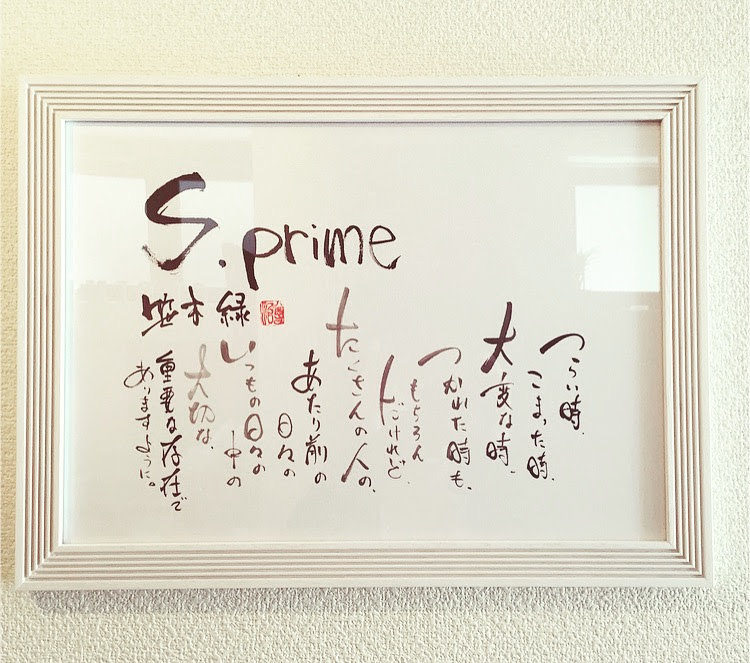 S.prime
笹木 緑
つらい時、
こまった時、
大変な時、
つかれた時も、
もちろん
だけれど、
たくさんの人の、
あたり前の
日々の
いつもの日々の
中の
大切な、
重要な存在で
ありますように。